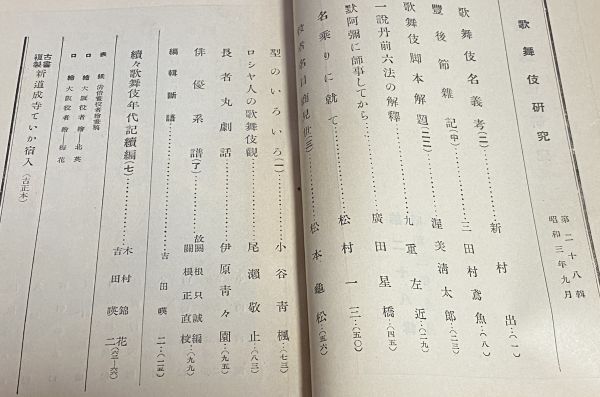 歌舞伎研究
第二十八輯
昭和三年九月
歌舞伎名義考(二)……新村出…(一)
豐後節雜記(中)……三田村鳶魚…(八)
歌舞伎脚本解題(二二)……渥美清太郎…(二三)
一說丹前六法の解釋……九重左近…(二九)
默阿彌に師事してから……廣田星橋…(四五)
名乘りに就て……松村一三…(五〇)
松本龜松…(五六)
型のいろいろ(一)……小谷青楓…(七三)
ロシヤ人の歌舞伎觀……尾瀬敬止…(八三)
長者丸劇話……伊原青々園…(九五)
俳優系譜(了)……故關根只誠編 關根正直校…(九九)
編輯斷語……吉田暎二…(一一五)
續々歌舞伎年代記續編(七)……木村錦花 吉田暎二(六三—六六)
口繪 大阪役者繪—北英
口繪 大阪役者繪—梅花
古書複製 新道成寺ていか宿入(吉正本)